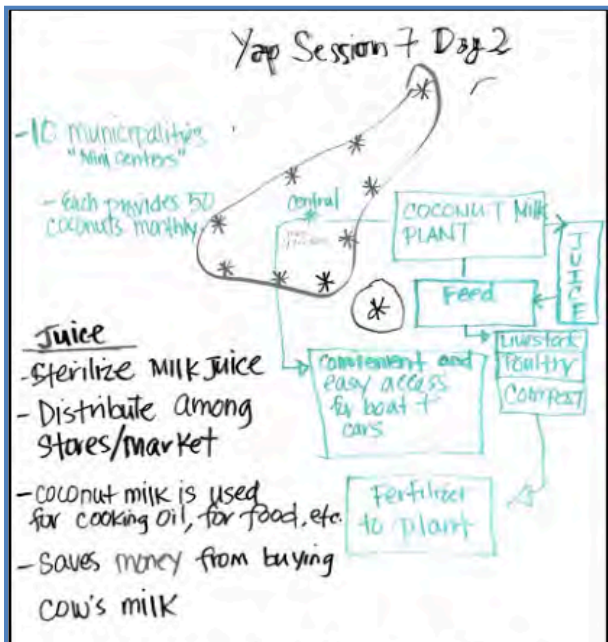 Yap Session 7 Day 2
-10 municipalities
"Mini centers"
- Each provides 50
coconuts monthly.
central
COCONUT Milk
PLANT
JUICE
Feed
Livestock
Poultry
COMPOST
convenient and
easy access
for boat +
cars
Fertilizer
to plant
Juice
- Sterilize Milk Juice
- Distribute among
Stores/market
- coconut milk is used
for cooking oil, for food, etc.
- Saves money from buying
cow's milk